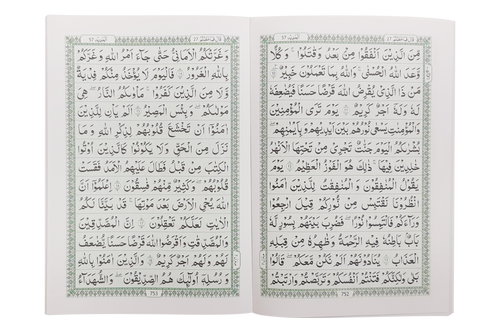 قَالَ فَمَا خَطْبُكُمْ ٢٧
الحديد ٥٧
مِّنَ الَّذِيْنَ اَنْفَقُوْا مِنْۢ بَعْدُ وَقٰتَلُوْا ؕ وَكُلًّا
وَّعَدَ اللّٰهُ الْحُسْنٰى ؕ وَاللّٰهُ بِمَا تَعْمَلُوْنَ خَبِيْرٌ ۝
مَنْ ذَا الَّذِيْ يُقْرِضُ اللّٰهَ قَرْضًا حَسَنًا فَيُضٰعِفَهٗ
لَهٗ وَلَهٗۤ اَجْرٌ كَرِيْمٌ ۝ يَوْمَ تَرَى الْمُؤْمِنِيْنَ
وَالْمُؤْمِنٰتِ يَسْعٰى نُوْرُهُمْ بَيْنَ اَيْدِيْهِمْ وَبِاَيْمَانِهِمْ
بُشْرٰىكُمُ الْيَوْمَ جَنّٰتٌ تَجْرِيْ مِنْ تَحْتِهَا الْاَنْهٰرُ
خٰلِدِيْنَ فِيْهَا ؕ ذٰلِكَ هُوَ الْفَوْزُ الْعَظِيْمُ ۝ يَوْمَ
يَقُوْلُ الْمُنٰفِقُوْنَ وَالْمُنٰفِقٰتُ لِلَّذِيْنَ اٰمَنُوا
انْظُرُوْنَا نَقْتَبِسْ مِنْ نُّوْرِكُمْ ۚ قِيْلَ ارْجِعُوْا
وَرَآءَكُمْ فَالْتَمِسُوْا نُوْرًا ؕ فَضُرِبَ بَيْنَهُمْ بِسُوْرٍ لَّهٗ
بَابٌ ؕ بَاطِنُهٗ فِيْهِ الرَّحْمَةُ وَظَاهِرُهٗ مِنْ قِبَلِهِ
الْعَذَابُ ۝ يُنَادُوْنَهُمْ اَلَمْ نَكُنْ مَّعَكُمْ ؕ قَالُوْا
بَلٰى وَلٰكِنَّكُمْ فَتَنْتُمْ اَنْفُسَكُمْ وَتَرَبَّصْتُمْ وَارْتَبْتُمْ
752
قَالَ فَمَا خَطْبُكُمْ ٢٧
الحديد ٥٧
وَغَرَّتْكُمُ الْاَمَانِيُّ حَتّٰى جَآءَ اَمْرُ اللّٰهِ وَغَرَّكُمْ
بِاللّٰهِ الْغَرُوْرُ ۝ فَالْيَوْمَ لَا يُؤْخَذُ مِنْكُمْ فِدْيَةٌ
وَّلَا مِنَ الَّذِيْنَ كَفَرُوْا ؕ مَاْوٰىكُمُ النَّارُ ؕ هِيَ
مَوْلٰىكُمْ ؕ وَبِئْسَ الْمَصِيْرُ ۝ اَلَمْ يَاْنِ لِلَّذِيْنَ
اٰمَنُوْۤا اَنْ تَخْشَعَ قُلُوْبُهُمْ لِذِكْرِ اللّٰهِ وَمَا
نَزَلَ مِنَ الْحَقِّ ۙ وَلَا يَكُوْنُوْا كَالَّذِيْنَ اُوْتُوا
الْكِتٰبَ مِنْ قَبْلُ فَطَالَ عَلَيْهِمُ الْاَمَدُ فَقَسَتْ
قُلُوْبُهُمْ ؕ وَكَثِيْرٌ مِّنْهُمْ فٰسِقُوْنَ ۝ اِعْلَمُوْۤا اَنَّ
اللّٰهَ يُحْيِ الْاَرْضَ بَعْدَ مَوْتِهَا ؕ قَدْ بَيَّنَّا لَكُمُ
الْاٰيٰتِ لَعَلَّكُمْ تَعْقِلُوْنَ ۝ اِنَّ الْمُصَّدِّقِيْنَ
وَالْمُصَّدِّقٰتِ وَاَقْرَضُوا اللّٰهَ قَرْضًا حَسَنًا يُّضٰعَفُ
لَهُمْ وَلَهُمْ اَجْرٌ كَرِيْمٌ ۝ وَالَّذِيْنَ اٰمَنُوْا بِاللّٰهِ
وَرُسُلِهٖۤ اُولٰٓئِكَ هُمُ الصِّدِّيْقُوْنَ ۖ وَالشُّهَدَآءُ
753